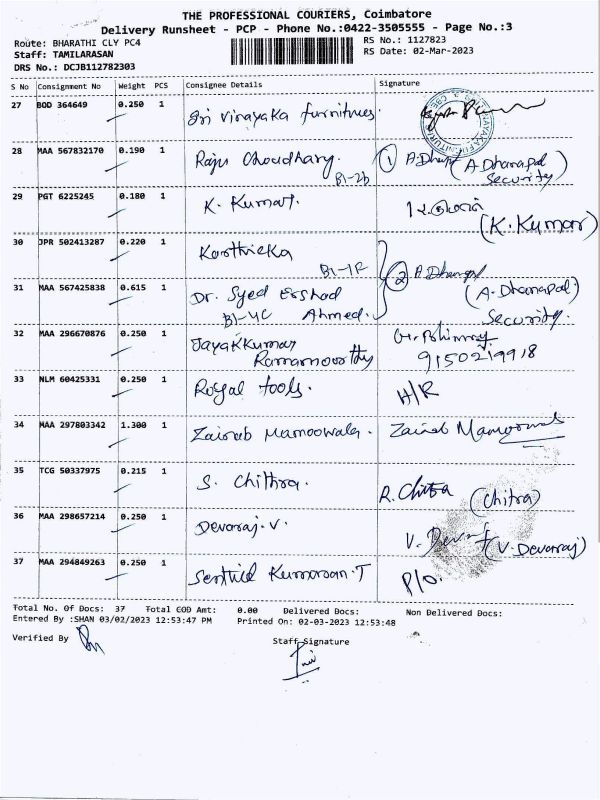 THE PROFESSIONAL COURIERS, Coimbatore
Delivery Runsheet - PCP - Phone No.:0422-3505555 - Page No.:3
Route: BHARATHI CLY PC4
RS No.: 1127823
Staff: TAMILARASAN
RS Date: 02-Mar-2023
DRS No.: DCJB112782303
S No Consignment No Weight PCS Consignee Details Signature
27 BOD 364649 0.250 1 Sri Vinayaka furnitures.
28 MAA 567832170 0.190 1 Raju Choudhary. B1-2b ① (A Dhanapal) Security
29 PGT 6225245 0.180 1 K. Kumar. (K.Kumar)
30 JPR 502413287 0.220 1 Karthieka
31 MAA 567425838 0.615 1 Dr. Syed Ershad Ahmed. B1-4C ② (A.Dhanapal) Security.
32 MAA 296670876 0.250 1 Jayakkumar Ramamoorthy
33 NLM 60425331 0.250 1 Royal tools. H/R
34 MAA 297803342 1.300 1 Zainab Mamoowala.
35 TCG 50337975 0.215 1 S. Chithra. R.Chitra (Chitra)
36 MAA 298657214 0.250 1 Devaraj.V. (V.Devaraj)
37 MAA 294849263 0.250 1 Senthil Kumaran.T P/O.
Total No. Of Docs: 37 Total COD Amt: 0.00 Delivered Docs: Non Delivered Docs:
Entered By :SHAN 03/02/2023 12:53:47 PM Printed On: 02-03-2023 12:53:48
Verified By
Staff Signature